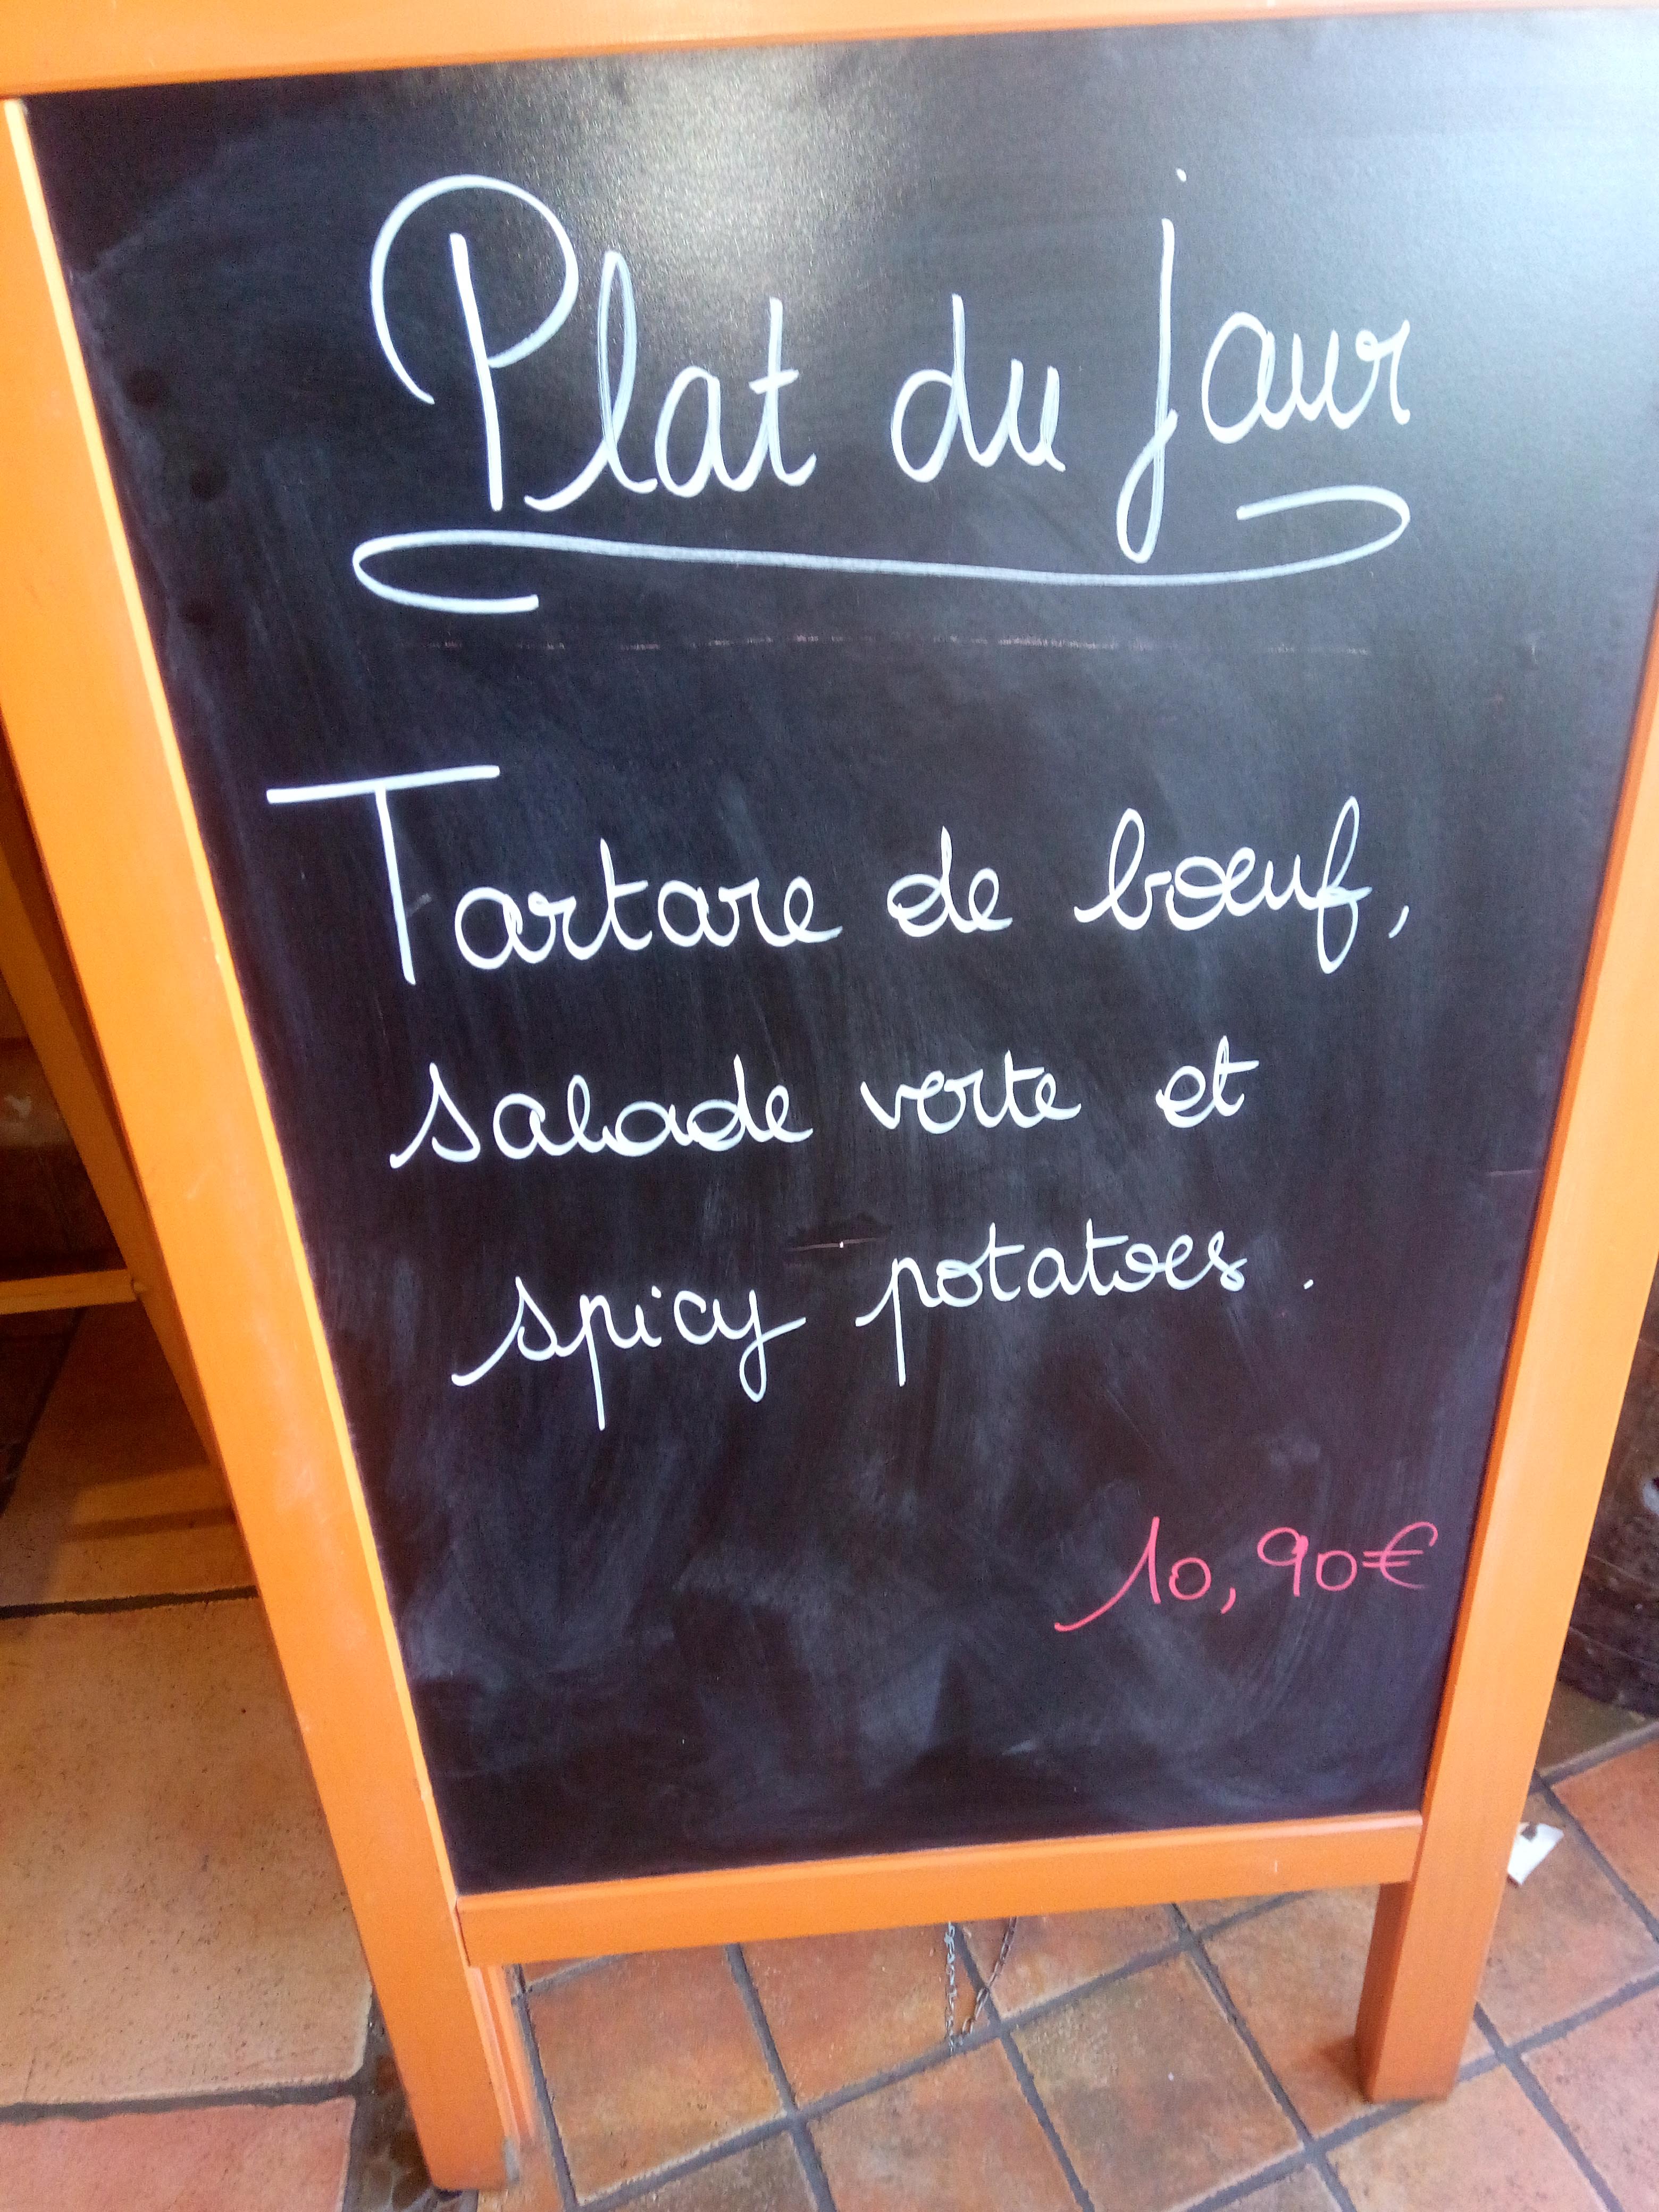 Plat du jour
Tartare de bœuf,
salade verte et
spicy potatoes.
10,90€